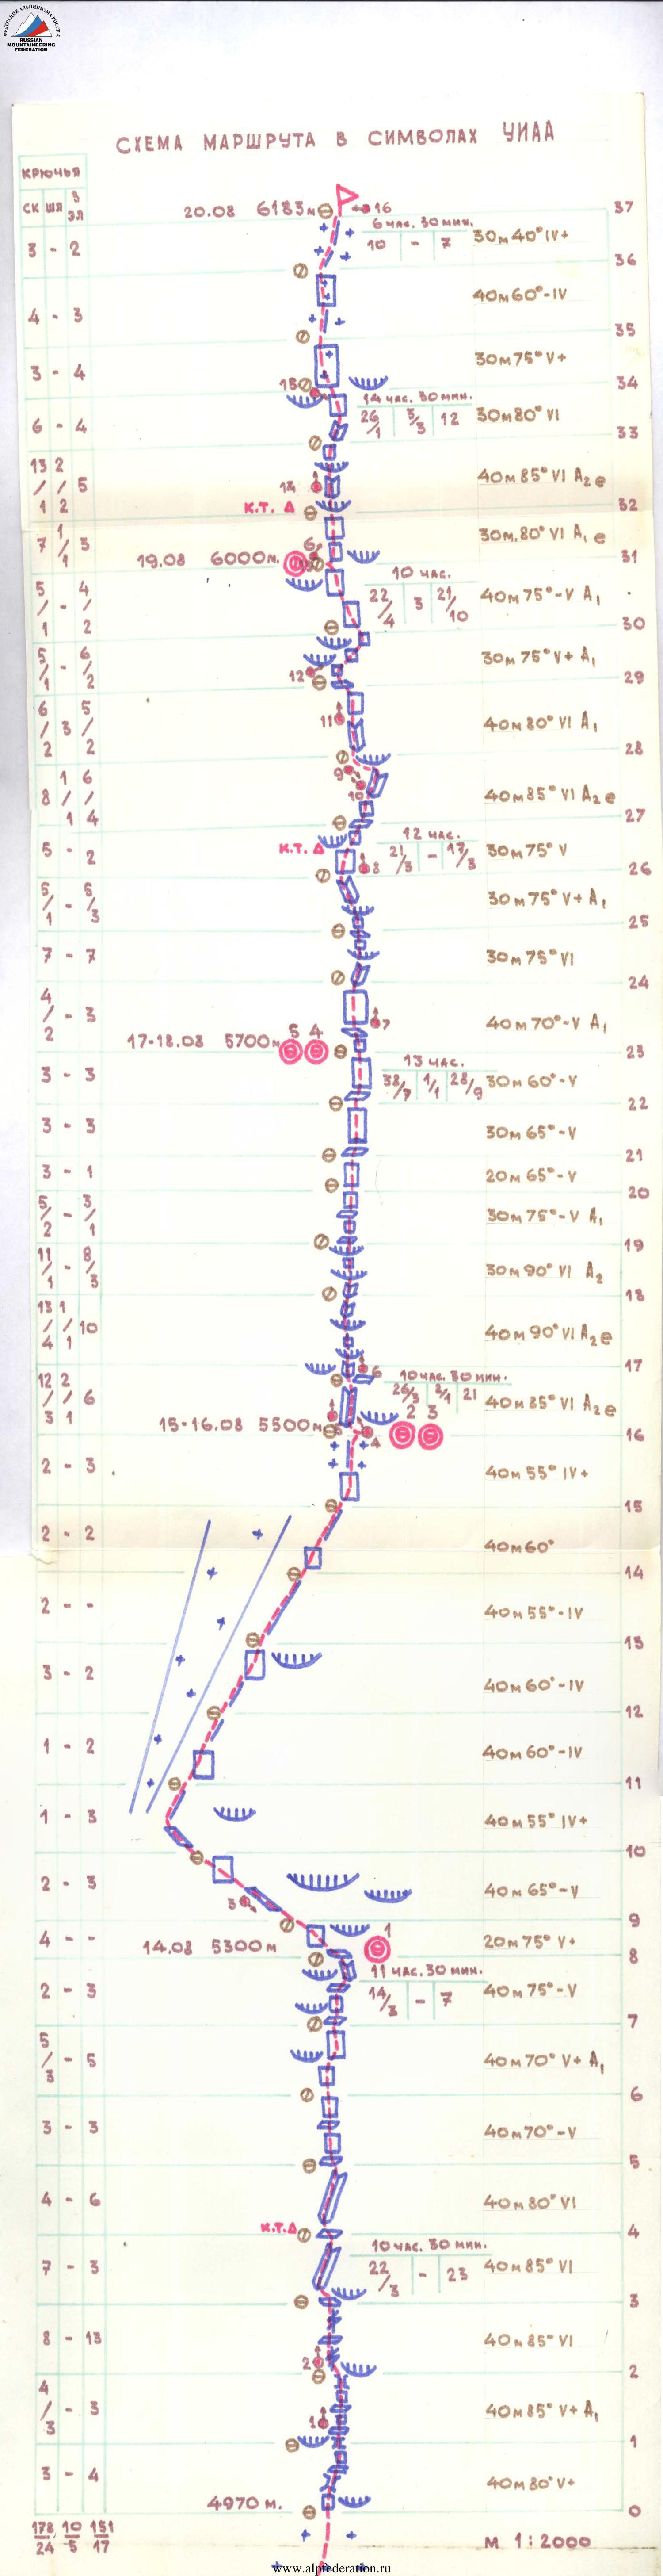 ФЕДЕРАЦИЯ АЛЬПИНИЗМА РОССИИ
RUSSIAN
MOUNTAINEERING
FEDERATION
СХЕМА МАРШРУТА В СИМВОЛАХ УИАА
КРЮЧЬЯ
СК ШЛ З ЭЛ
20.08 6183м 16 37
6 час. 30 мин.
10 - 7
3 - 2 30м 40° IV+
36
4 - 3 40м 60°-IV
35
3 - 4 30м 75° V+
15 34
14 час. 30 мин.
26/1 5/3 12
6 - 4 30м 80° VI
33
13/1 2/2 5 14 40м 85° VI А2е
К.Т. 32
7 1/1 3 30м 80° VI А1е
19.08 6000м. 6 31
10 час.
22/4 3 21/10
5/1 - 4/2 40м 75°-V А1
30
5/1 - 6/2 30м 75° V+ А1
12 29
6/2 3 5/2 11 40м 80° VI А1
28
9
10
8 1/1 6/4 40м 85° VI А2е
27
12 час.
21/3 - 17/3
5 - 2 К.Т. 8 30м 75° V
26
5/1 - 5/3 30м 75° V+ А1
25
7 - 7 30м 75° VI
24
4/2 - 3 7 40м 70°-V А1
17-18.08 5700м 5 4 23
13 час.
38/7 1/1 28/9
3 - 3 30м 60°-V
22
3 - 3 30м 65°-V
21
3 - 1 20м 65°-V
20
5/2 - 3/1 30м 75°-V А1
19
11/1 - 8/3 30м 90° VI А2
18
13/4 1/1 10 40м 90° VI А2е
17
6
10 час. 30 мин.
26/3 2/1 21
12/3 2/1 6 40м 85° VI А2е
15-16.08 5500м 4 2 3 16
2 - 3 40м 55° IV+
15
2 - 2 40м 60°
14
2 - - 40м 55°-IV
13
3 - 2 40м 60°-IV
12
1 - 2 40м 60°-IV
11
1 - 3 40м 55° IV+
10
2 - 3 3 40м 65°-V
9
4 - - 14.08 5300м 1 20м 75° V+
8
11 час. 30 мин.
14/3 - 7
2 - 3 40м 75°-V
7
5/3 - 5 40м 70° V+ А1
6
3 - 3 40м 70°-V
5
4 - 6 40м 80° VI
К.Т. 4
10 час. 30 мин.
22/3 - 23
7 - 3 40м 85° VI
3
8 - 13 40м 85° VI
2 2
4/3 - 3 1 40м 85° V+ А1
1
3 - 4 40м 80° V+
4970 м. 0
178/24 10/5 151/17 М 1:2000
www.alpfederation.ru